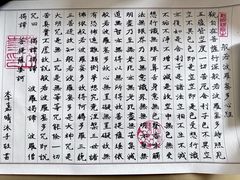 般若波羅蜜多心經
觀自在菩薩行深般若波羅蜜多時照見
五蘊皆空度一切苦厄舍利子色不異空
空不異色色即是空空即是色受想行識
亦復如是舍利子是諸法空相不生不滅
不垢不淨不增不減是故空中無色無受
想行識無眼耳鼻舌身意無色聲香味觸
法無眼界乃至無意識界無無明亦無無
明盡乃至無老死亦無老死盡無苦集滅
道無智亦無得以無所得故菩提薩埵依
般若波羅蜜多故心無罣礙無罣礙故無
有恐怖遠離顛倒夢想究竟涅槃三世諸
佛依般若波羅蜜多故得阿耨多羅三藐
三菩提故知般若波羅蜜多是大神咒是
大明咒是無上咒是無等等咒能除一切
苦真實不虛故說般若波羅蜜多咒即說
咒曰 揭諦揭諦 波羅揭諦 波羅僧
揭諦 菩提薩婆訶
李孟晴沐手敬書